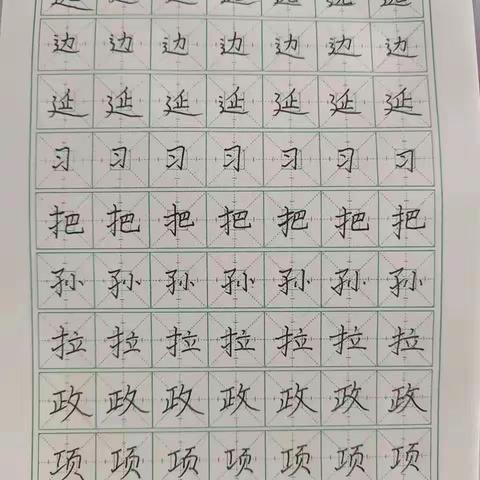 边 边 边 边 边 边 边
延 延 延 延 延 延 延
习 习 习 习 习 习 习
把 把 把 把 把 把 把
孙 孙 孙 孙 孙 孙 孙
拉 拉 拉 拉 拉 拉 拉
政 政 政 政 政 政 政
项 项 项 项 项 项 项